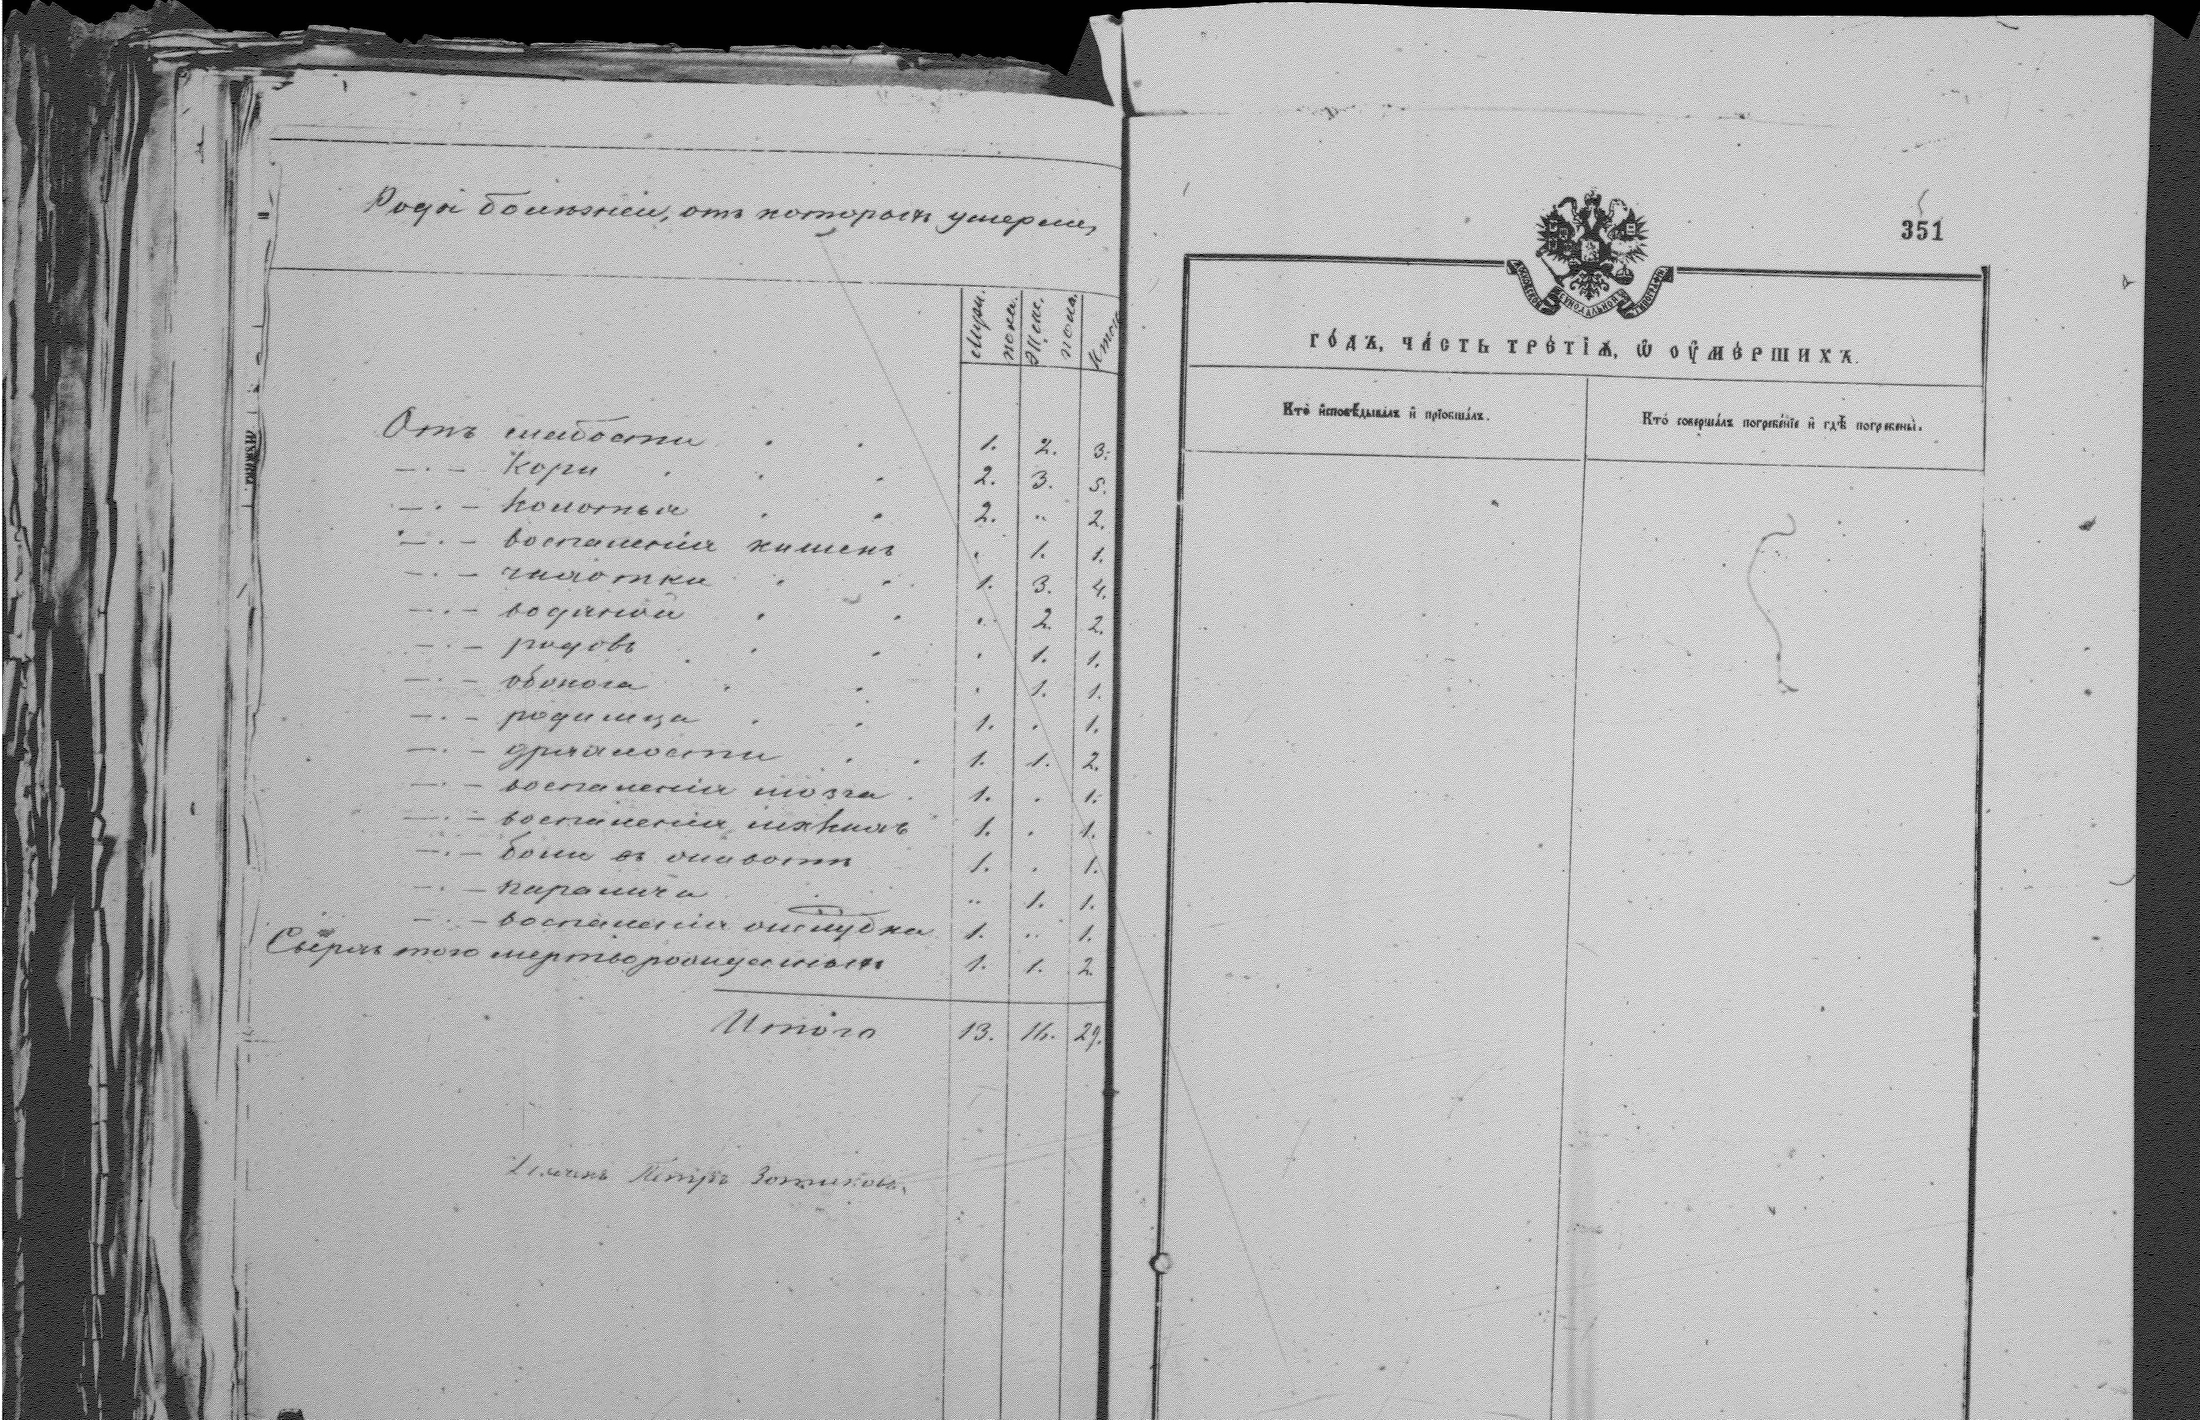 Роды болѣзней, отъ которыхъ умерли,
Муж. пола. Жен. пола. Итого
Отъ слабости 1. 2. 3.
—·— Кори 2. 3. 5.
—·— Колотья 2. „ 2.
—·— воспаленія кишекъ . 1. 1.
—·— чахотки 1. 3. 4.
—·— водяной . 2. 2.
—·— родовъ . 1. 1.
—·— . 1. 1.
—·— родимца 1. . 1.
—·— дряхлости 1. 1. 2.
—·— воспаленія мозга 1. . 1.
—·— воспаленія легкихъ 1. . 1.
—·— боли въ 1. . 1.
—·— паралича „ 1. 1.
—·— воспаленія желудка 1. „ 1.
Сверхъ того мертворожденныхъ 1. 1. 2.
Итого 13. 16. 29.
Петръ Зотиковъ.
351
МОСКОВСКОЙ СѴНОДАЛЬНОЙ ТИПОГРАФІИ
го́дъ, ча́сть тре́тїѧ, ѡ҆ ᲂу҆ме́ршихъ.
Кто̀ и҆сповѣ́дывалъ и҆ прїѻбща́лъ.
Кто̀ соверша́лъ погребе́нїе и҆ гдѣ̀ погребены̀.